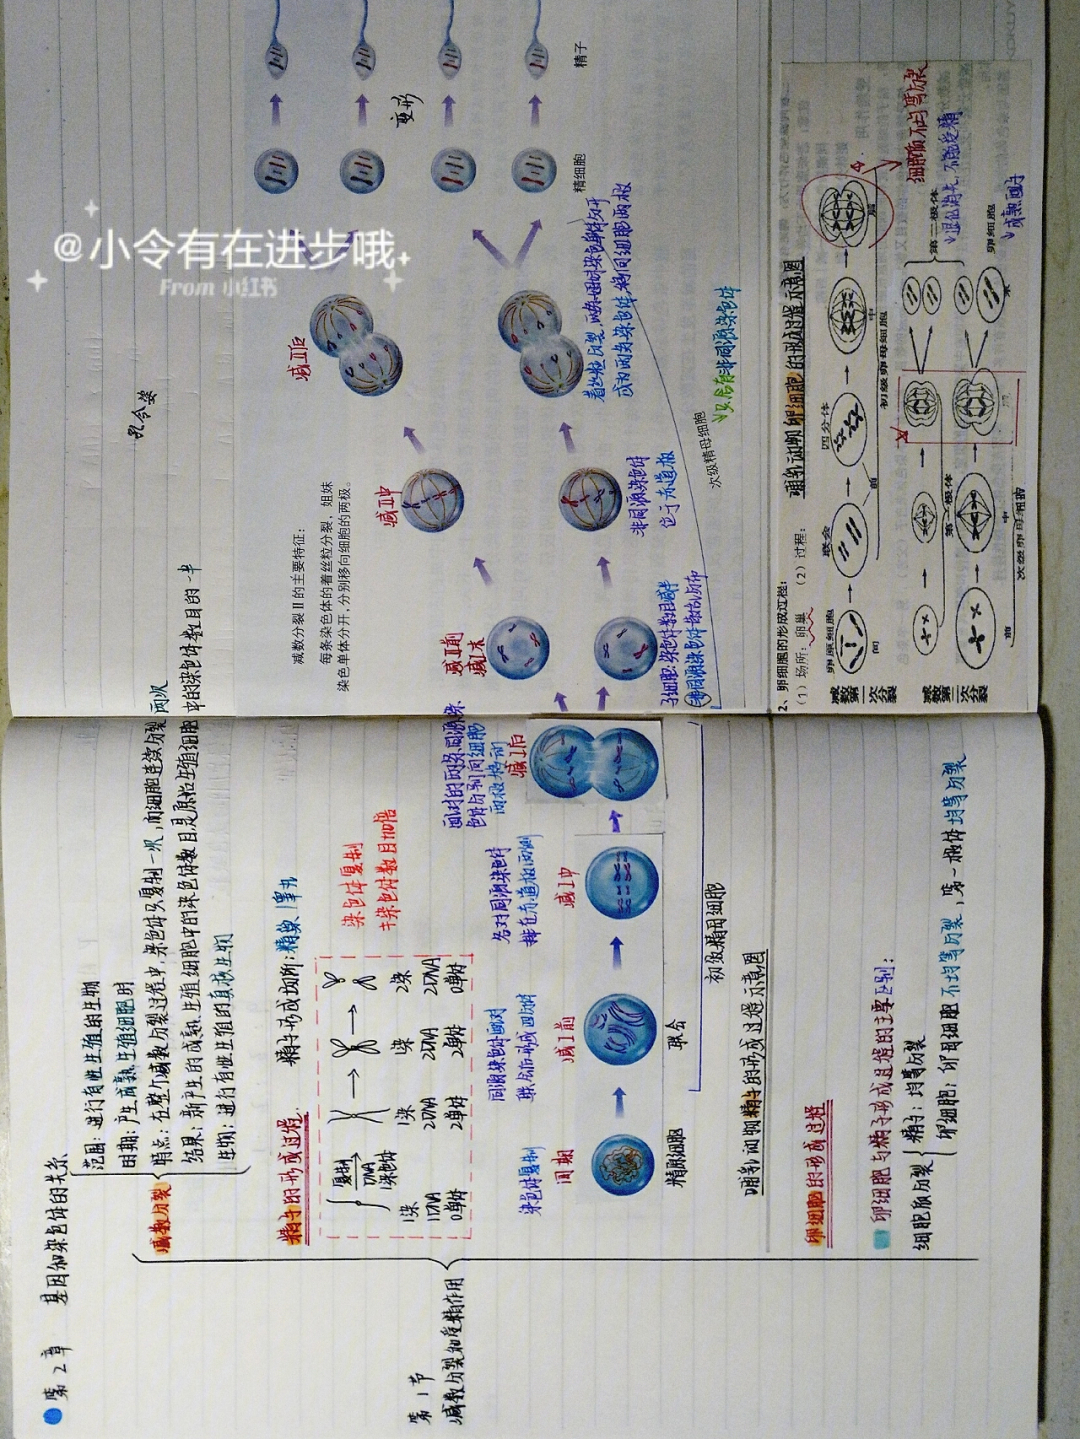 第2章 基因和染色体的关系
第1节
减数分裂和受精作用
减数分裂
范围：进行有性生殖的生物
时期：产生成熟生殖细胞时
特点：在整个减数分裂过程中，染色体只复制一次，而细胞连续分裂两次
结果：新产生的成熟生殖细胞中的染色体数目是原始生殖细胞中的染色体数目的一半
生物：进行有性生殖的真核生物
孔令姿
精子的形成过程
精子形成场所：精巢/睾丸
复制
DNA
1染色体
1染
1DNA
0单体
1染
2DNA
2单体
1染
2DNA
2单体
2染
2DNA
0单体
染色体复制
≠染色体数目加倍
染色体复制
间期
精原细胞
同源染色体两两配对
联会后形成四分体
减Ⅰ前
联会
各对同源染色体
排在赤道板两侧
减Ⅰ中
配对的两条同源染
色体分别向细胞
两极移动
减Ⅰ后
初级精母细胞
哺乳动物精子的形成过程示意图
减数分裂Ⅱ的主要特征：
每条染色体的着丝粒分裂，姐妹
染色单体分开，分别移向细胞的两极。
减Ⅱ前
减Ⅰ末
子细胞：染色体数目减半
非同源染色体散乱分布
减Ⅱ中
非同源染色体
位于赤道板
减Ⅱ后
着丝粒分裂，两条姐妹染色单体分开
成为两条染色体，移向细胞两极
次级精母细胞
只含有非同源染色体
精细胞
变形
精子
卵细胞的形成过程
卵细胞与精子形成过程的主要区别：
细胞质分裂
精子：均等分裂
卵细胞：卵母细胞不均等分裂，第一极体均等分裂
2、卵细胞的形成过程：
(1) 场所：卵巢 (2) 过程：
哺乳动物卵细胞的形成过程示意图
减数第一次分裂
卵原细胞
间
联会
四分体
前
中
后
初级卵母细胞
细胞质不均等分裂
减数第二次分裂
第一极体
前
中
次级卵母细胞
第二极体
退化消失，不能受精
卵细胞
末
成熟面时
@小令有在进步哦
From 小红书